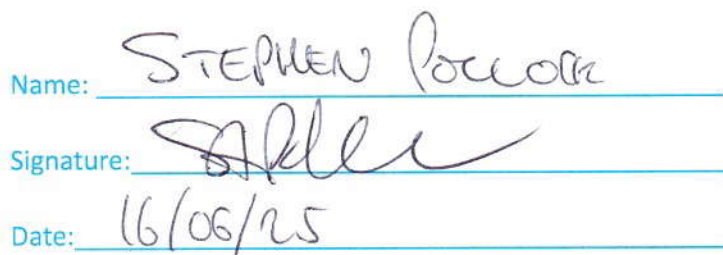 Name: STEPHEN POLLOCK
Signature:
Date: 16/06/25